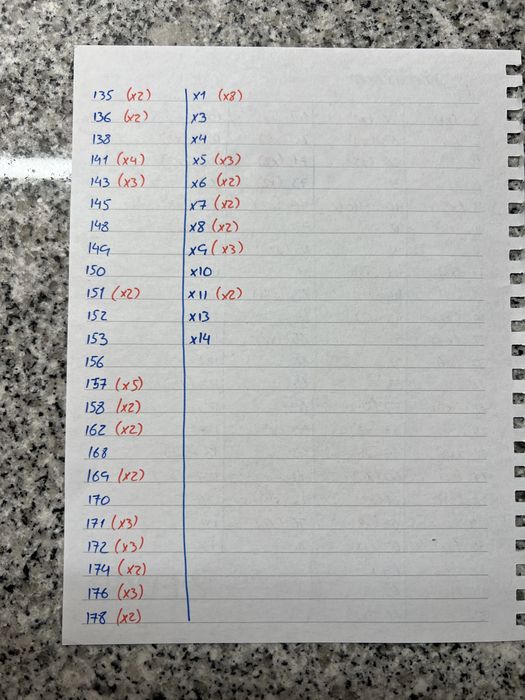 135 (x2) x1 (x8)
136 (x2) x3
138 x4
141 (x4) x5 (x3)
143 (x3) x6 (x2)
145 x7 (x2)
148 x8 (x2)
149 x9 (x3)
150 x10
151 (x2) x11 (x2)
152 x13
153 x14
156
157 (x5)
158 (x2)
162 (x2)
168
169 (x2)
170
171 (x3)
172 (x3)
174 (x2)
176 (x3)
178 (x2)